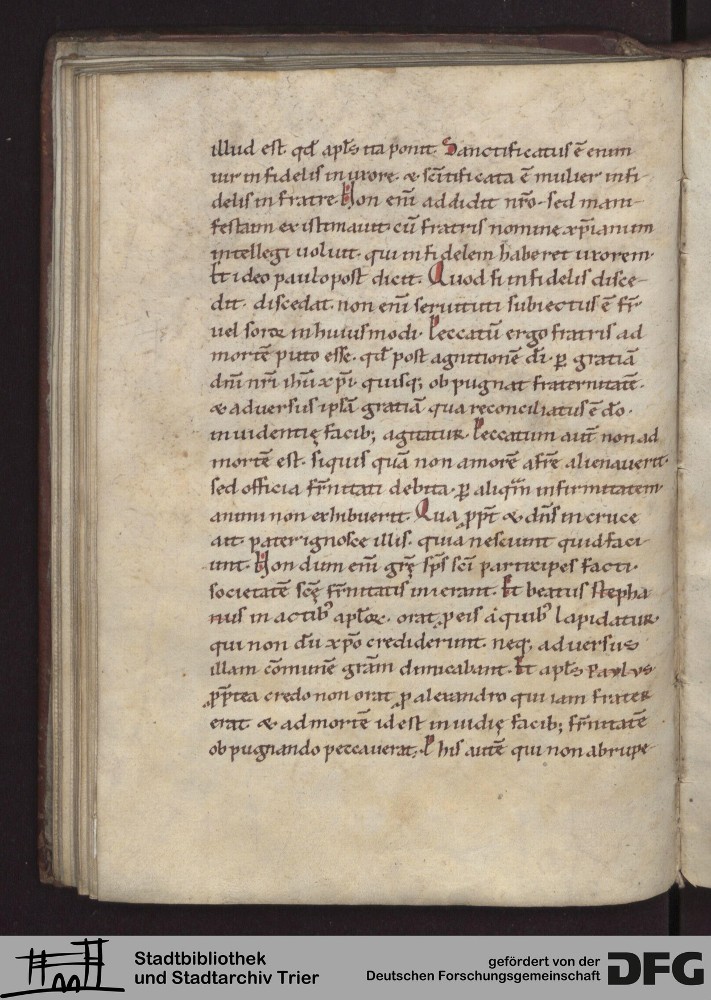 illud est. qđ apľs ita ponit. Sanctificatus ē enim
uir infidelis in uxore. & scīificata ē mulier infi-
delis in fratre. Non eni̅ addidit nr̄o. sed mani-
festam existimauit. cū fratris nomine xp̄ianum
intellegi uoluit. qui infidelem haberet uxorem.
Et ideo paulo post dicit. Quod si infidelis disce-
dit. discedat. non eni̅ seruituti subiectus ē fr̄
uel soror in huiusmodi. Peccatū ergo fratris ad
mortē puto esse. qđ post agnitionē dī. ꝑ gratiā
dn̄i nr̄i ihū xp̄i. quisq; obpugnat fraternitatē.
& aduersus ipsā gratiā qua reconciliatus ē dō.
inuidentię facib; agitatur. Peccatum aut̄ non ad
mortē est. siquis quā non amorē a fr̄e alienauerit.
sed officia fr̄nitati debita. ꝑ aliqm̄ infirmitatem
animi non exhibuerit. Qua ꝓpt̄ & dn̄s in cruce
ait. pater ignosce illis. quia nesciunt quid faci-
unt. Non dum eni̅ gr̄ę sp̄s sc̄i participes facti.
societatē sc̄ę fr̄nitatis inierant. Et beatus stepha
nus in actib; apľoꝝ. orat ꝓ eis a quib; lapidatur
qui non dū xp̄o crediderunt. neq; aduersus
illam cōmunē grām dimicabant. Et apľs PAULUS
ꝓpt̄ea credo non orat ꝓ alexandro qui iam frater
erat & ad mortē id est inuidię facib; fr̄nitatē
obpugnando peccauerat. P his autē qui non abrupe-
Stadtbibliothek
und Stadtarchiv Trier
gefördert von der
Deutschen Forschungsgemeinschaft
DFG